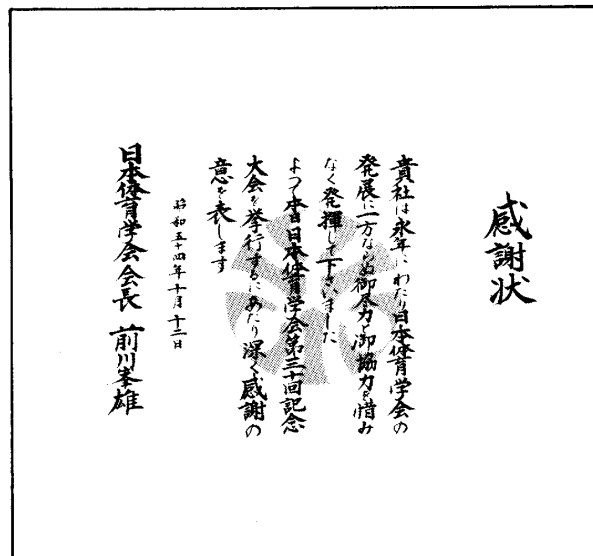 感謝状
貴社は永年にわたり日本体育学会の
発展に一方ならぬ御尽力と御協力を惜み
なく発揮して下さいました
よつて本日日本体育学会第三十回記念
大会を挙行するにあたり深く感謝の
意を表します
昭和五十四年十月十二日
日本体育学会会長 前川峯雄